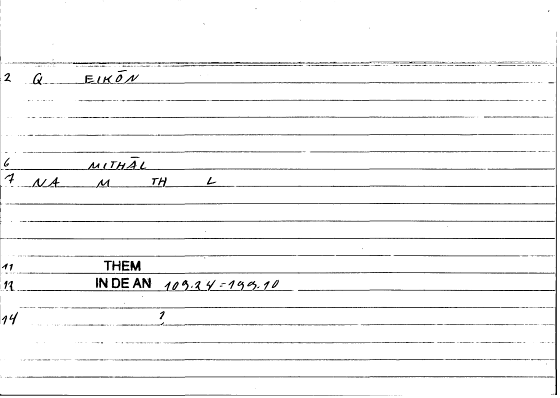 2 Q EIKŌN
6 MITHĀL
7 NA M TH L
11 THEM
12 IN DE AN 109.24=199.10
14 ?